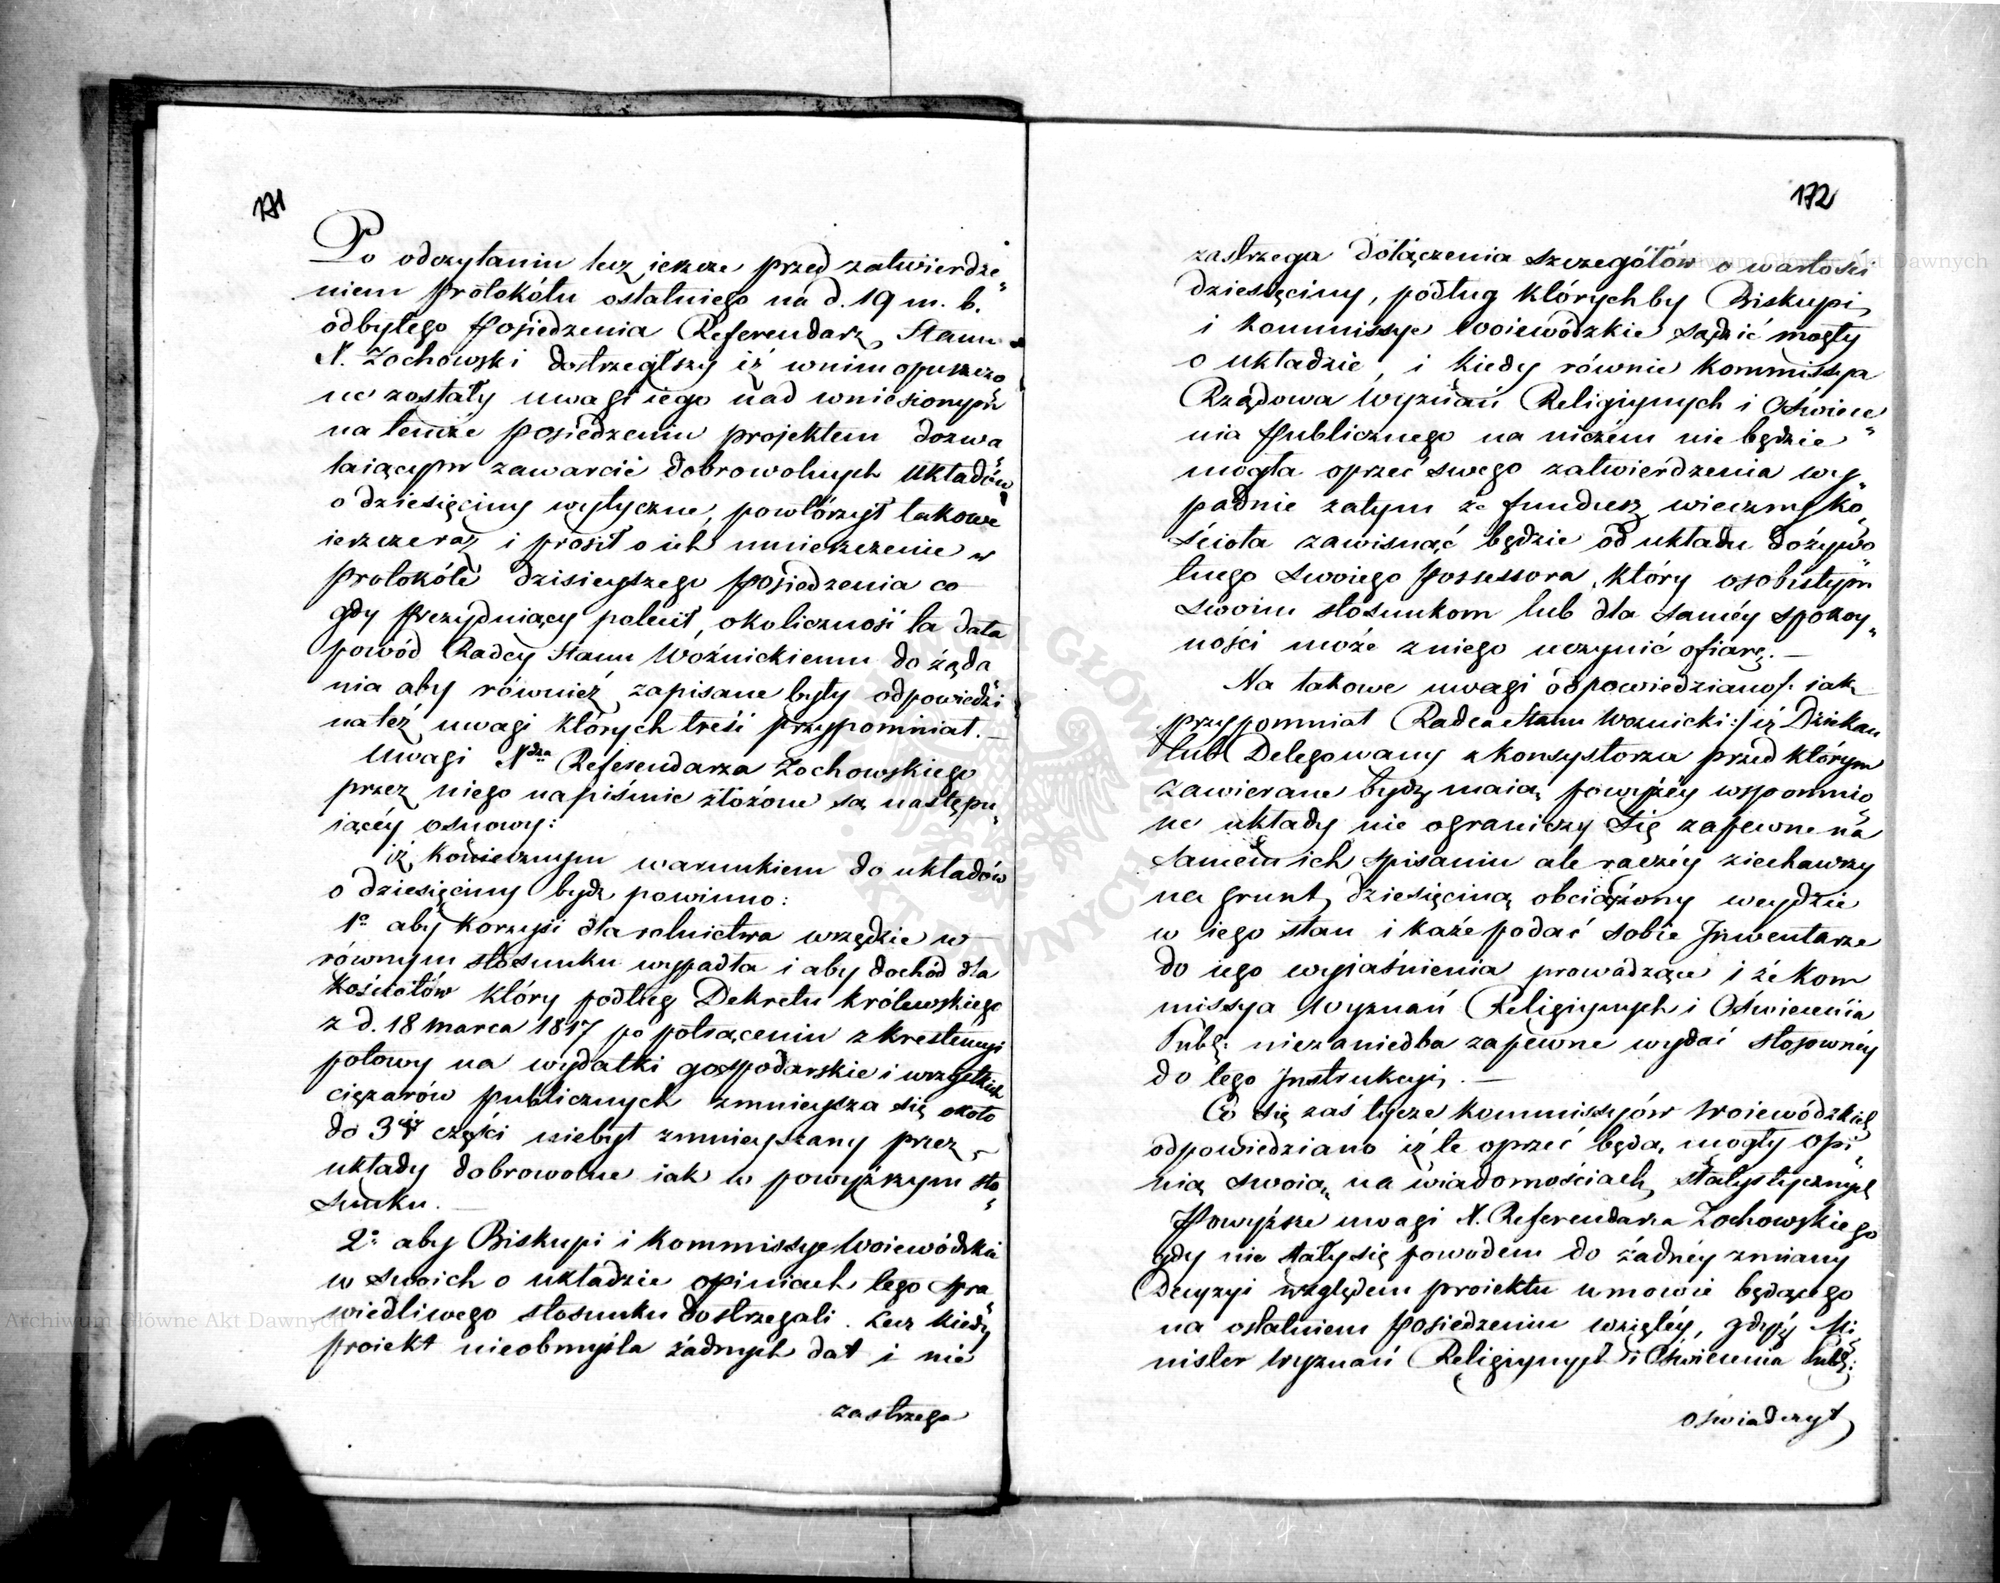 171
Po odczytaniu lecz ieszcze przed zatwierdze„
niem protokółu ostatniego na d. 19 m. b.
odbytego Posiedzenia Referendarz Stanu
N. Żochowski dostrzegłszy iż w nim opuszczo„
ne zostały uwagi iego nad wniesionym
na temże posiedzeniu projektem dozwa„
laiącym zawarcie dobrowolnych układów
o dziesięciny wytyczne, powtórzył takowe
ieszcze raz i prosił o ich umieszczenie w
protokóle dzisieyszego posiedzenia co
gdy Prezyduiący polecił, okoliczność ta dała
powód Radcy Stanu Woźnickiemu do żąda„
nia aby również zapisane były odpowiedzi
na też uwagi których treść przypomniał. —
Uwagi Referendarza Żochowskiego
przez niego na piśmie złożone są następu„
iącéy osnowy:
iż koniecznym warunkiem do układów
o dziesięciny bydź powinno:
1º aby korzyści dla rolnictwa wszędzie w
równym stosunku wypadła i aby dochód dla
Kościołów który podług Dekretu Królewskiego
z d. 18 Marca 1817 po potrąceniu z krestencyi
połowy na wydatki gospodarskie i wszystkich
ciężarów publicznych zmnieysza się około
do 3éy części niebył zmnieyszany przez
układy dobrowolne iak w powyższym sto„
sunku. —
2º aby Biskupi i Kommissye Woiewódzkie
w swoich o układzie opiniach tego spra„
wiedliwego stosunku dostrzegali. Lecz kiedy
proiekt nieobmyśla żadnych dat i nie
zastrzega
172
zastrzega dołączenia szczegółów o wartości
dziesięciny, podług których by Biskupi
i Kommissye Woiewódzkie sądzić mogły
o układzie, i kiedy równie Kommissya
Rządowa Wyznań Religiynych i Oświece„
nia Publicznego na niczém nie będzie
mogła oprzeć swego zatwierdzenia wy„
padnie zatym że fundusz wieczny Ko„
ścioła zawisnąć będzie od układu dożywo„
tnego swoiego Possessora, który osobistym
swoim stosunkom lub dla saméy spokoy„
ności może z niego uczynić ofiarę. —
Na takowe uwagi odpowiedziano /: iak
przypomniał Radca Stanu Woznicki :/ iż Dziekan
lub Delegowany z konsystorza przed którym
zawierane bydź maią powyżéy wspomnio„
ne układy nie ograniczy się zapewne na
samém ich spisaniu ale raczéy ziechawszy
na grunt dziesięciną obciążony weydzie
w iego stan i każe podać sobie Inwentarze
do iego wyiaśnienia prowadzące i że Kom
missya Wyznań Religiynych i Oświecenia
Publ: niezaniedba zapewne wydać stosownéy
do tego Instrukcyi. —
Co się zaś tycze Kommissyów Woiewódzkich
odpowiedziano iż te oprzeć będą mogły opi„
nią swoią na wiadomościach statystycznych
Powyższe uwagi N. Referendarza Żochowskiego
gdy nie stały się powodem do żadnéy zmiany
Decyzyi względem proiektu w mowie będącego
na ostatniem Posiedzeniu wziętéy, gdyż Mi„
nister Wyznań Religiynych i Oświecenia Publ:
oświadczył
Archiwum Główne Akt Dawnych